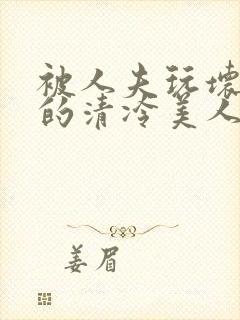 被人夫玩壞
的清冷美人
姜眉